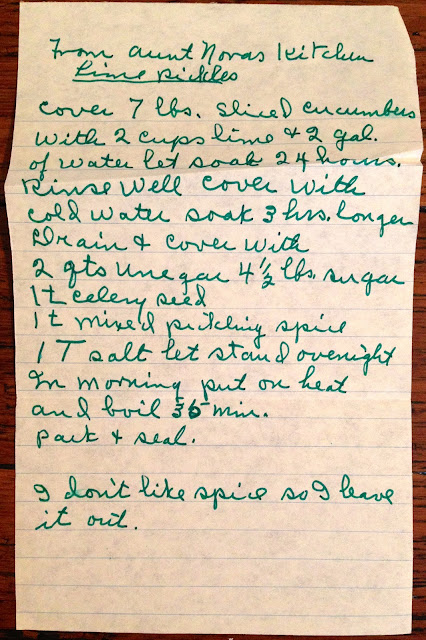 From aunt Novas Kitchen
Lime pickles
Cover 7 lbs. sliced cucumbers
with 2 cups lime & 2 gal.
of water let soak 24 hours.
Rinse well cover with
cold water soak 3 hrs. longer
Drain & cover with
2 qts vinegar 4 1/2 lbs. sugar
1 t celery seed
1 t mixed pickling spice
1 T salt let stand overnight
In morning put on heat
and boil 35 min.
pack & seal.
I don't like spice so I leave
it out.